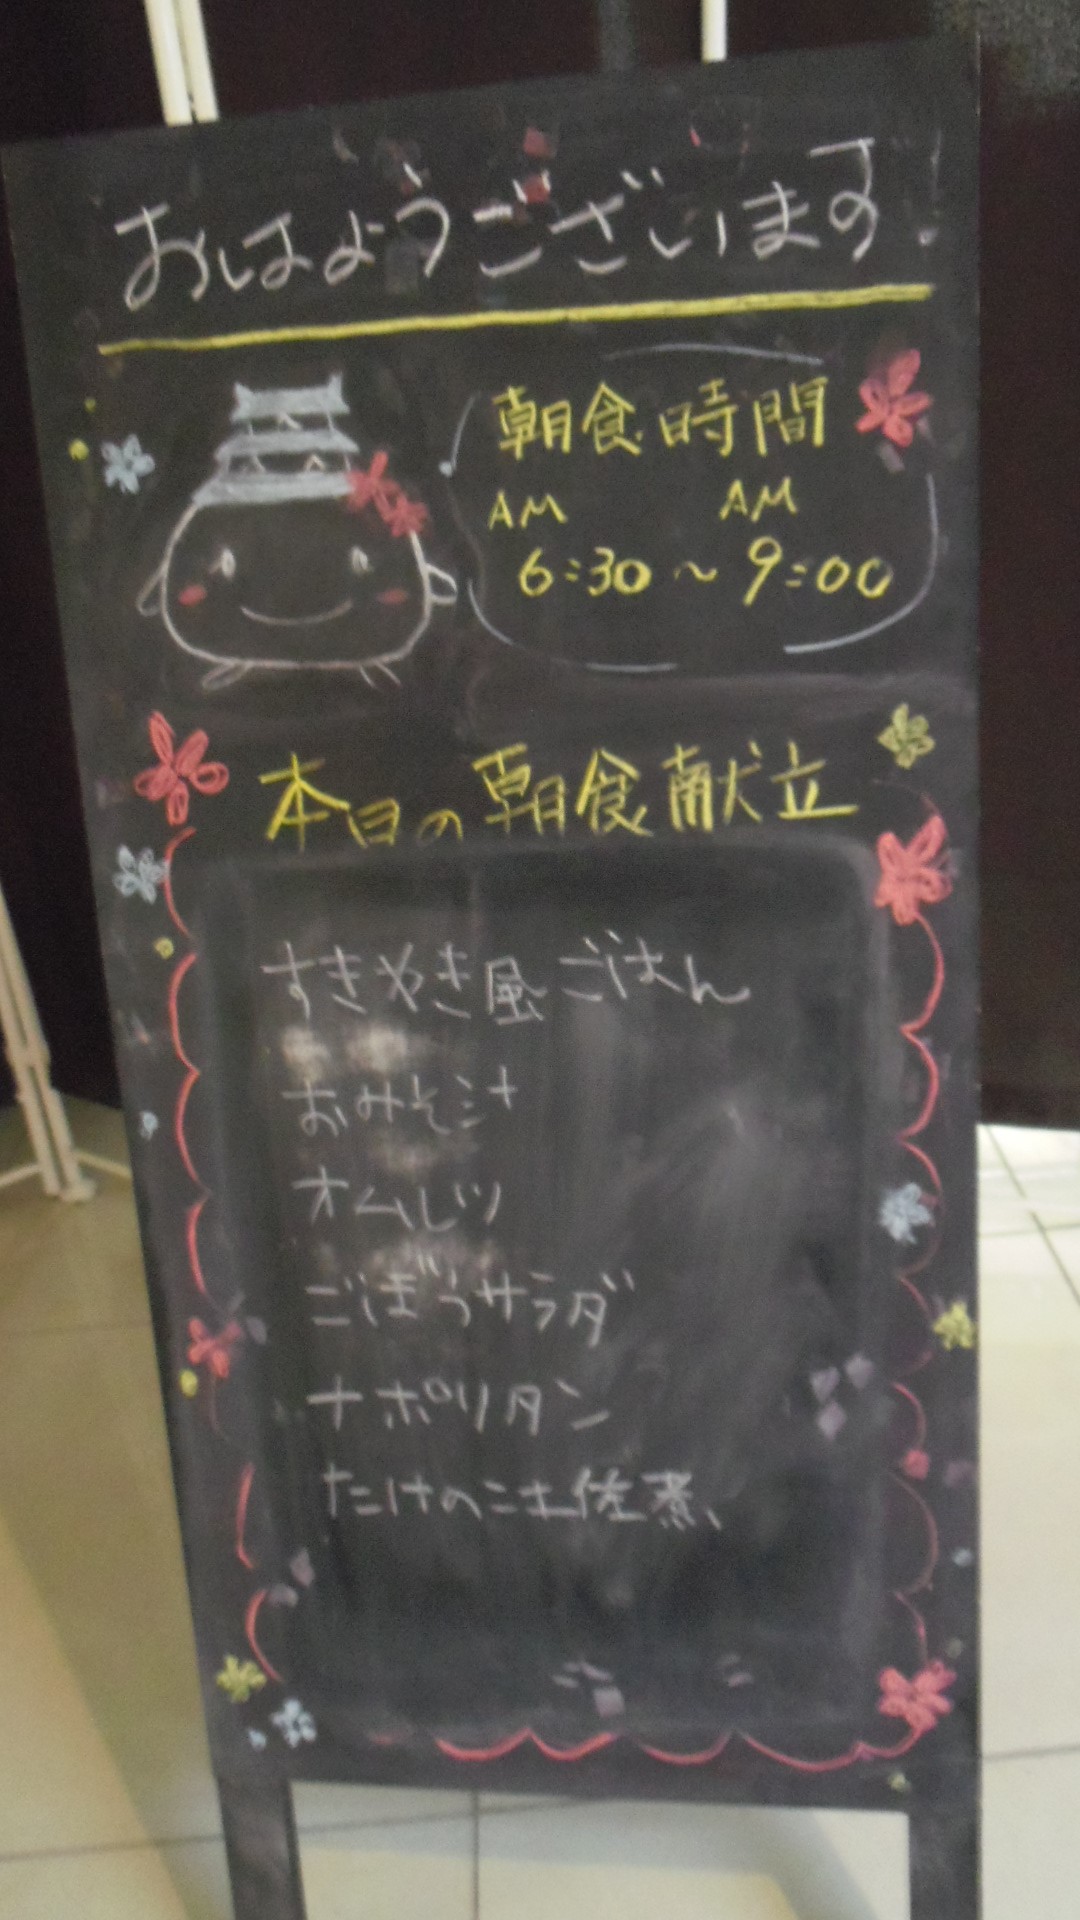 おはようございます
朝食時間
AM AM
6:30〜9:00
本日の朝食献立
すきやき風ごはん
おみそ汁
オムレツ
ごぼうサラダ
ナポリタン
たけのこ土佐煮